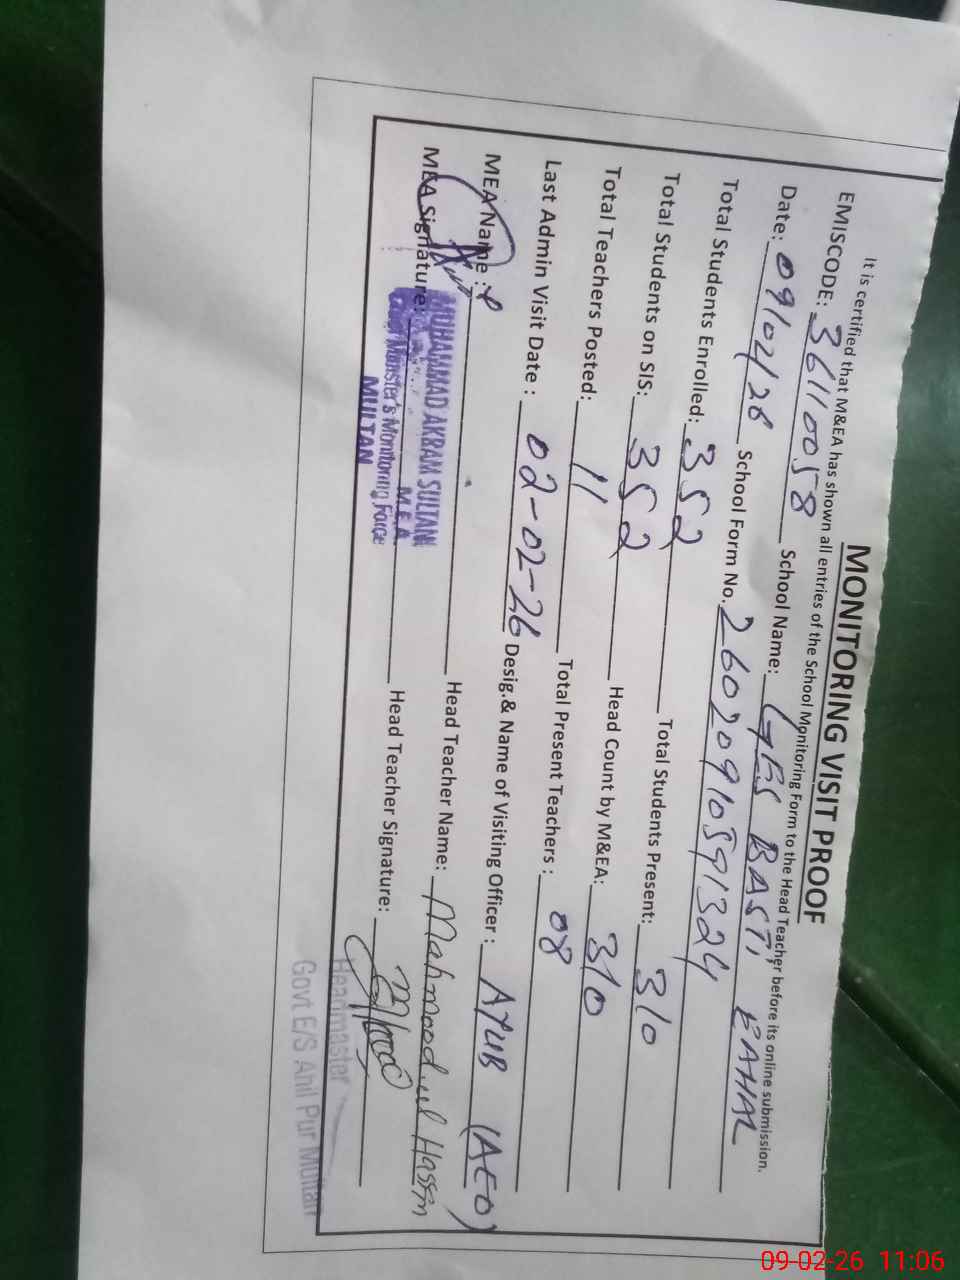 MONITORING VISIT PROOF
It is certified that M&EA has shown all entries of the School Monitoring Form to the Head Teacher before its online submission.
EMISCODE: 36110058 School Name: GES BASTI
Date: 09/02/26 School Form No. 26020910591324
Total Students Enrolled: 352 Total Students Present: 310
Total Students on SIS: 352 Head Count by M&EA: 310
Total Teachers Posted: 11 Total Present Teachers: 08
Last Admin Visit Date : 02-02-26 Desig.& Name of Visiting Officer : AYUB (AEO)
MEA Name : Head Teacher Name: Mahmood ul Hassan
MEA Signature: Head Teacher Signature:
MUHAMMAD AKRAM SULTANI
M.E.A
Chief Minister's Monitoring Force
MULTAN
Headmaster
Govt E/S Ahil Pur Multan
09-02-26 11:06